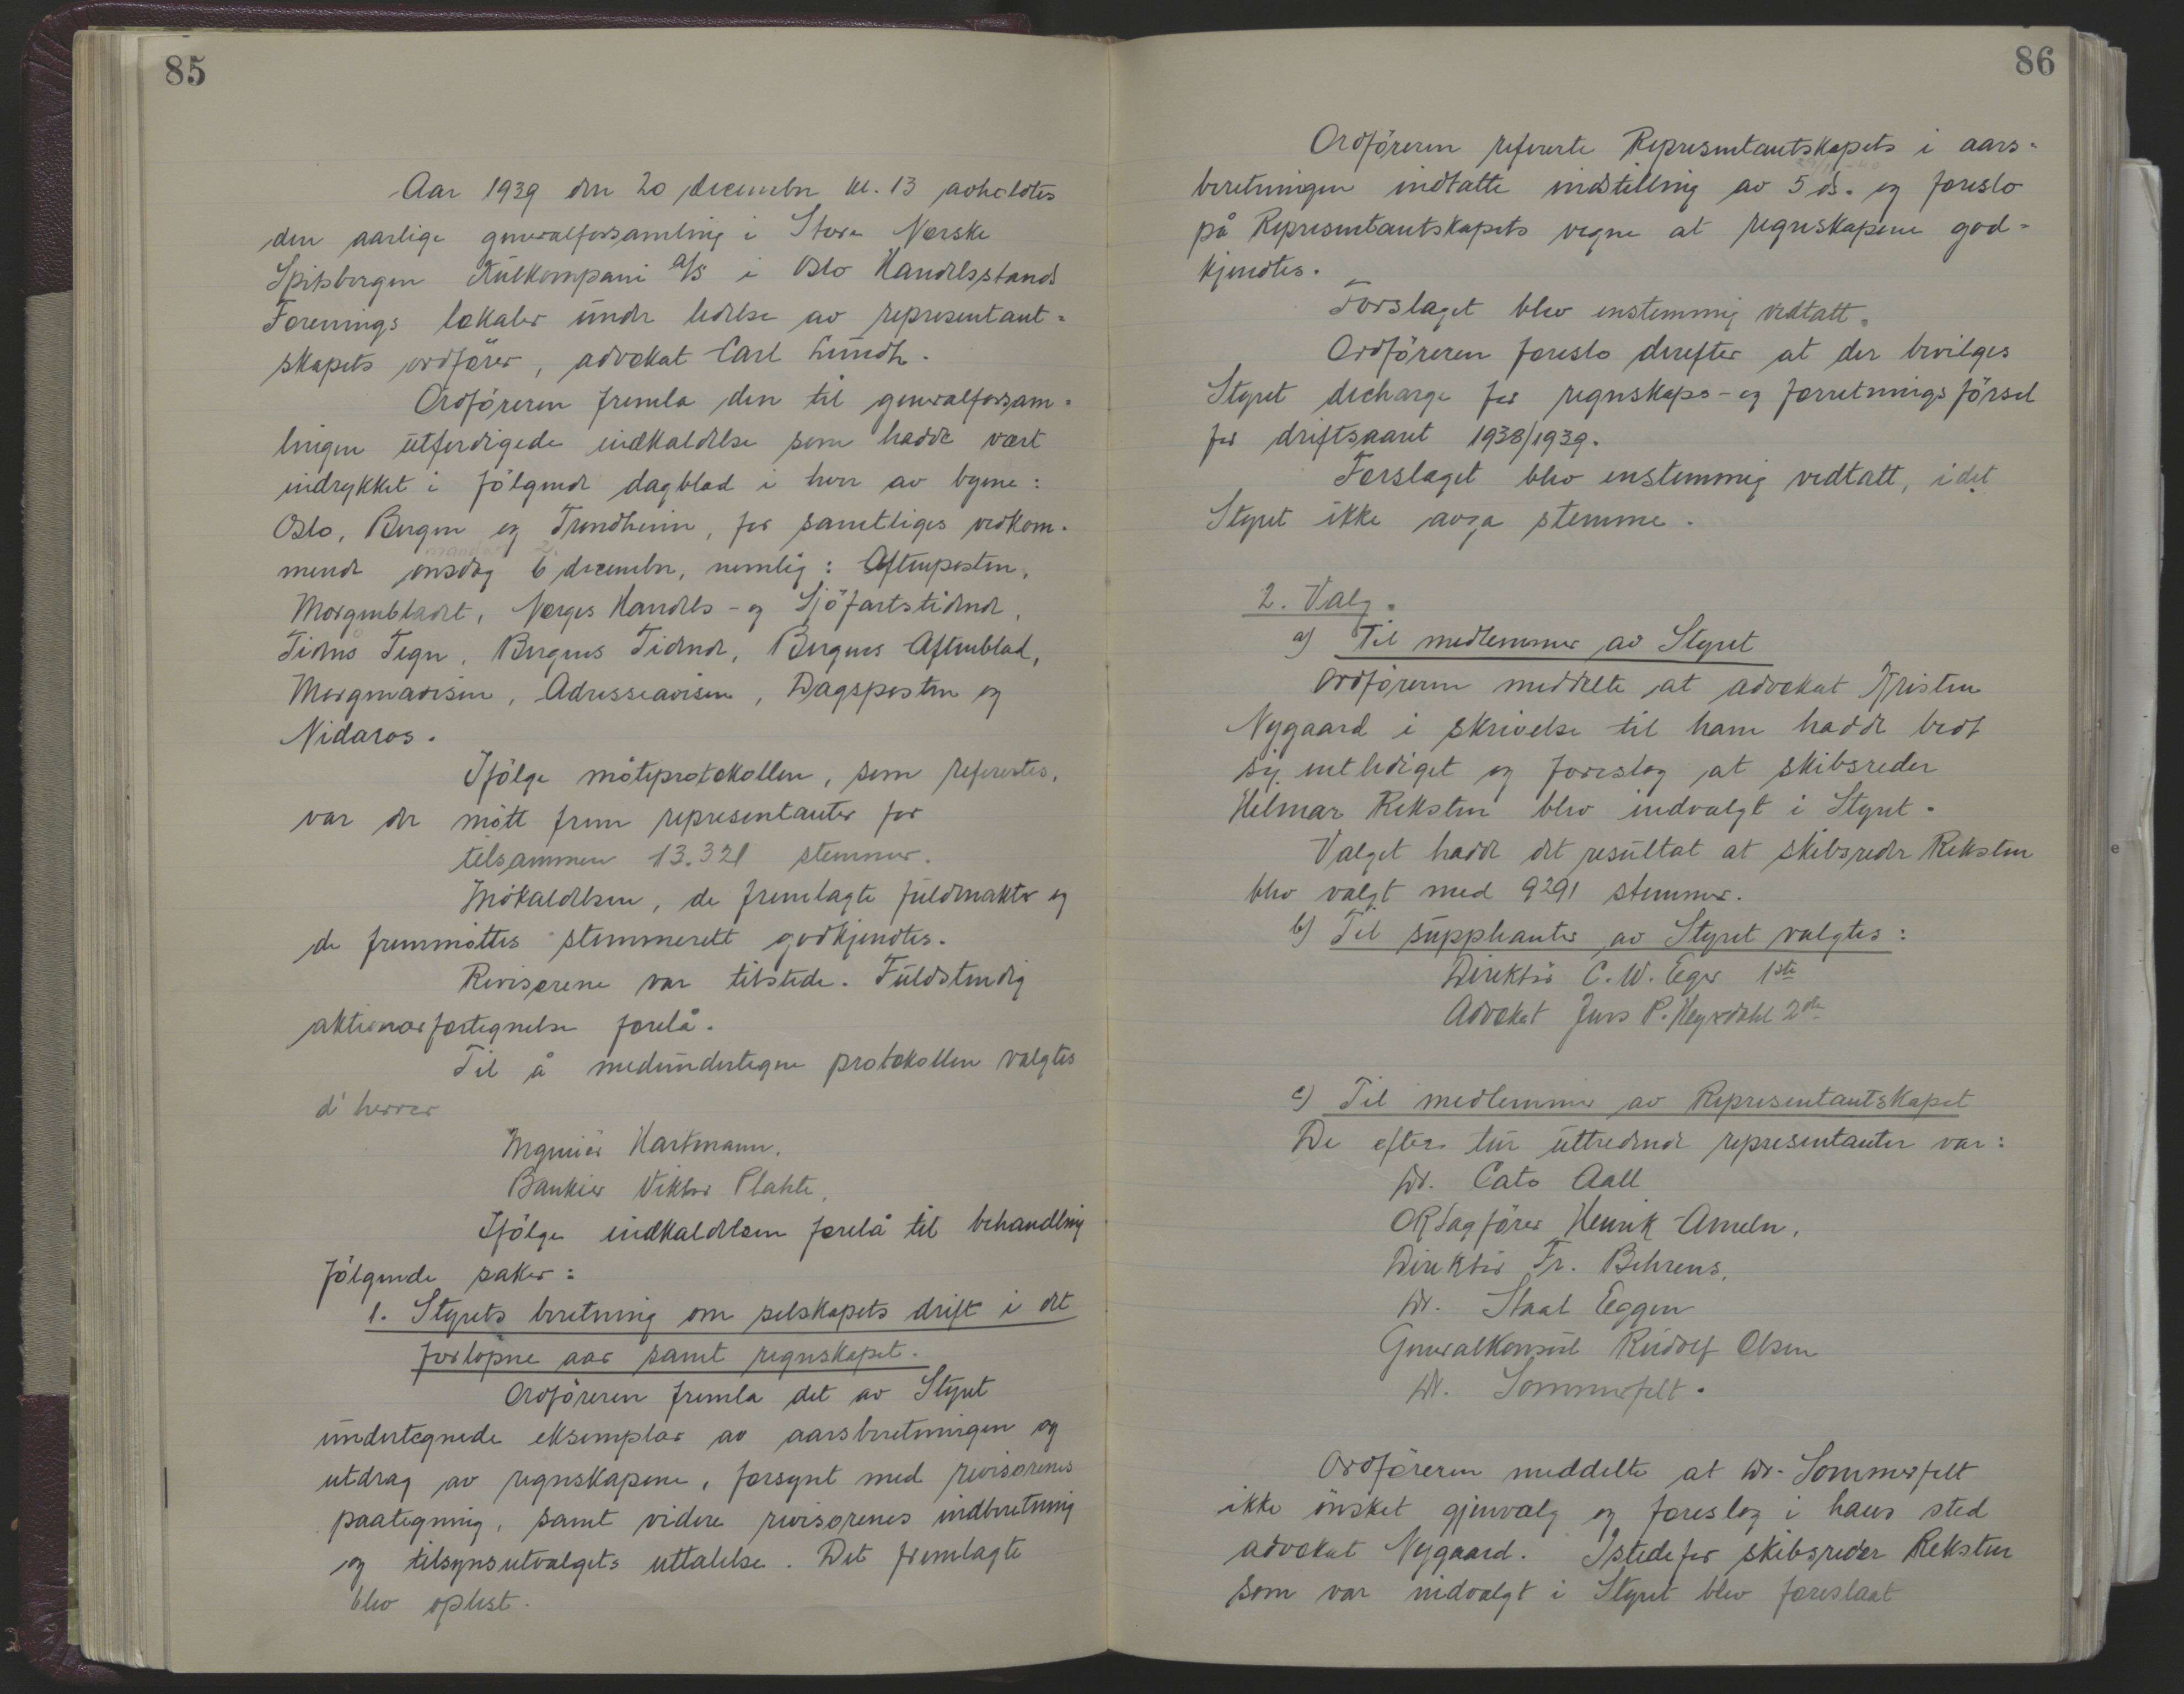 85
Aar 1939 den 20 december kl. 13 avholdtes
den aarlige generalforsamling i Store Norske
Spitsbergen Kulkompani A/S i Oslo Handelsstands
Forenings lokaler under ledelse av representant-
skapets ordfører, advokat Carl Lundh.
Ordføreren fremla den til generalforsam-
lingen utferdigede indkaldelse som hadde vært
indrykket i følgende dagblad i hver av byene:
Oslo, Bergen og Trondheim, for samtliges vedkom-
mende onsdag 6 december, nemlig: Aftenposten,
Morgenbladet, Norges Handels- og Sjöfartstidende,
Tidens Tegn, Bergens Tidende, Bergens Aftenblad,
Morgenavisen, Adresseavisen, Dagsposten og
Nidaros.
Ifölge möteprotokollen, som referertes,
var der mött frem representanter for
tilsammen 13.321 stemmer.
Indkaldelsen, de fremlagte fuldmakter og
de fremmöttes stemmerett godkjendtes.
Revisorene var tilstede. Fuldstendig
aktionærfortegnelse forelå.
Til å medundertegne protokollen valgtes
d'herrer
Ingeniör Hartmann,
Bankier Viktor Plahte,
Ifölge indkaldelsen forelå til behandling
fölgende saker:
1. Styrets beretning om selskapets drift i det
forlöpne aar samt regnskapet.
Ordföreren fremla det av Styret
undertegnede eksemplar av aarsberetningen og
utdrag av regnskapene, forsynt med revisorenes
paategning, samt videre revisorenes indberetning
og tilsynsutvalgets uttalelse. Det fremlagte
blev oplest.
86
Ordföreren refererte Representantskapets i aars-
beretningen indtatte indstilling av 5 ds. og foreslo
på Representantskapets vegne at regnskapene god-
kjendtes.
Forslaget blev enstemmig vedtatt.
Ordföreren foreslo derefter at der bevilges
Styret decharge for regnskaps- og forretningsförsel
for driftsaaret 1938/1939.
Forslaget blev enstemmig vedtatt, idet
Styret ikke avga stemme.
2. Valg.
a) Til medlemmer av Styret
Ordföreren meddelte at advokat Kristen
Nygaard i skrivelse til ham hadde bedt
sig entlediget og foreslog at skibsreder
Hilmar Reksten blev indvalgt i Styret.
Valget hadde det resultat at skibsreder Reksten
blev valgt med 9291 stemmer.
b) Til suppleanter av Styret valgtes:
Direktör C. W. Eger 1ste
Advokat Jens P. Heyerdahl 2den
c) Til medlemmer av Representantskapet
De efter tur uttredende representanter var:
Dr. Cato Aall
ORSagförer Henrik Ameln,
Direktör Fr. Behrens,
Dr. Staal Eggen
Generalkonsul Rudolf Olsen
Dr. Sommerfelt.
Ordföreren meddelte at Dr. Sommerfelt
ikke önsket gjenvalg og foreslog i hans sted
advokat Nygaard. Istedefor skibsreder Reksten
som var indvalgt i Styret blev foreslaat